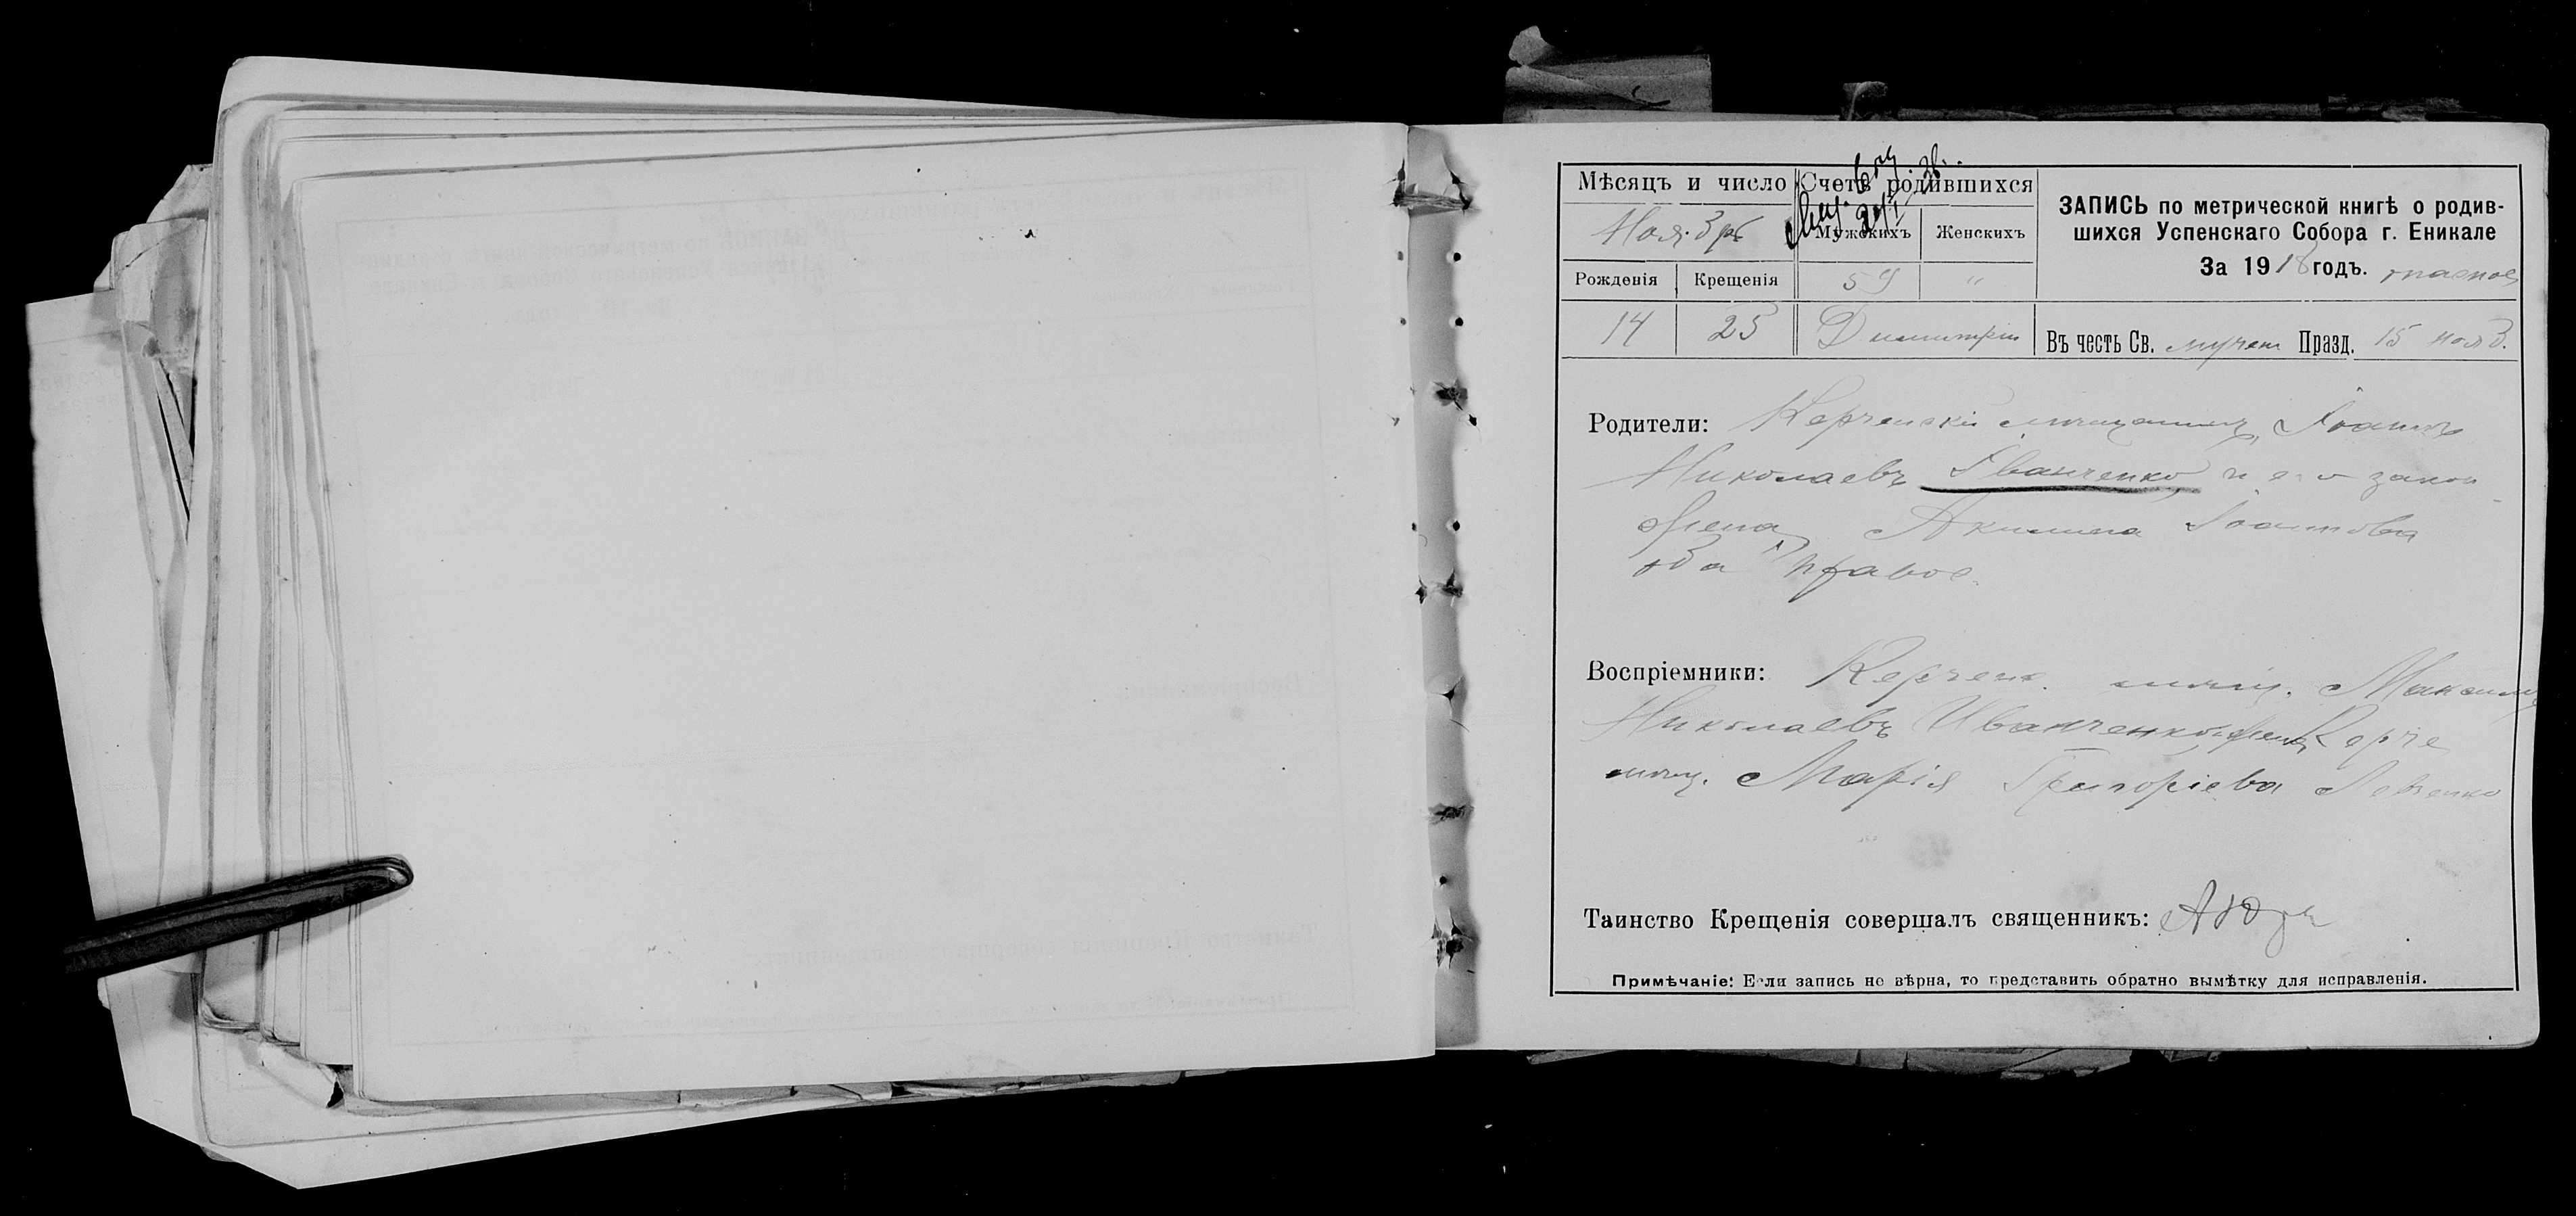 Мѣсяцъ и число
Счетъ родившихся
Нояб
Мужскихъ
Женскихъ
Рожденія
Крещенія
59
"
ЗАПИСЬ по метрической книгѣ о родив-
шихся Успенскаго Собора г. Еникале
За 1918 годъ.
14
25
Димитрій
Въ честь Св. мучен Празд. 15 нояб.
Родители: Керченскій мѣщанинъ Іоаннъ
Николаевъ Иванченко и его закон
жена Акилина Іоаннова
оба правос.
Воспріемники: Керченс. мѣщ. Максимъ
Николаевъ Иванченко и жена Керче
мѣщ. Марія Григоріева Левченко
Таинство Крещенія совершалъ священникъ:
Примѣчаніе: Если запись не вѣрна, то представить обратно вымѣтку для исправленія.